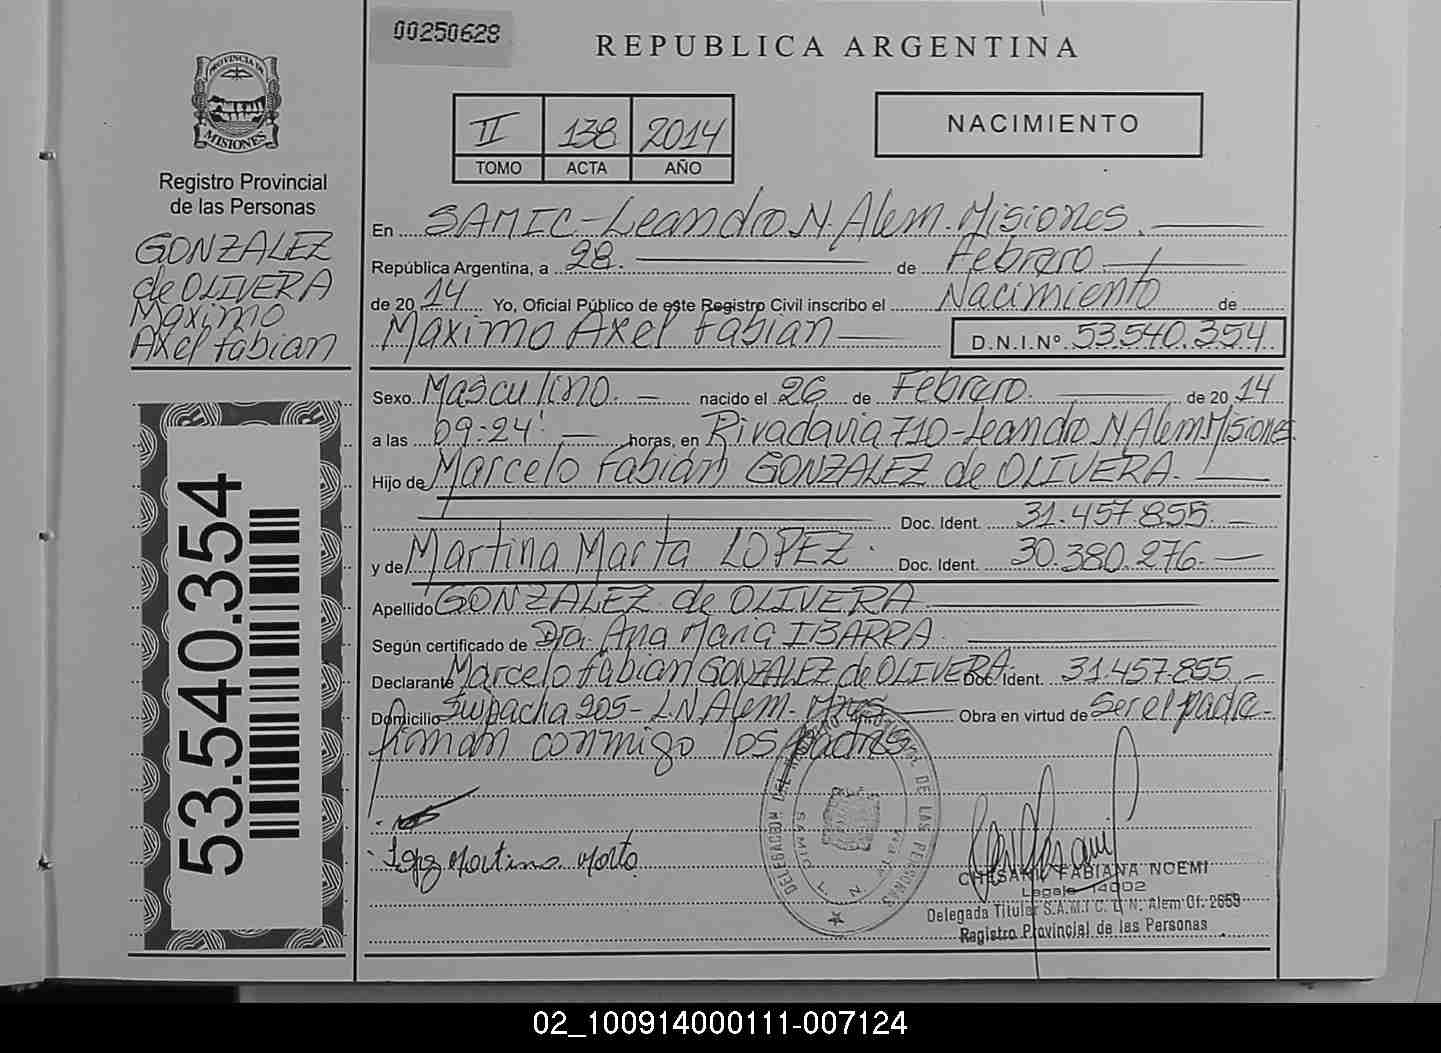 00250628
REPUBLICA ARGENTINA
PROVINCIA DE
MISIONES
Registro Provincial
de las Personas
GONZALEZ
de OLIVERA
Maximo
Axel Fabian
53.540.354
II 138 2014
TOMO ACTA AÑO
NACIMIENTO
En SAMIC - Leandro N. Alem. Misiones.
República Argentina, a 28. de Febrero
de 2014 Yo, Oficial Público de este Registro Civil inscribo el Nacimiento de
Maximo Axel Fabian D.N.I.Nº 53.540.354
Sexo Masculino. nacido el 26 de Febrero. de 2014
a las 09:24' horas, en Rivadavia 710 - Leandro N Alem. Misiones.
Hijo de Marcelo Fabian GONZALEZ de OLIVERA.
Doc. Ident. 31.457.855.
y de Martina Marta LOPEZ. Doc. Ident. 30.380.276.
Apellido GONZALEZ de OLIVERA
Según certificado de Dra. Ana Maria IBARRA.
Declarante Marcelo Fabian GONZALEZ de OLIVERA. Doc. Ident. 31.457.855
Domicilio Suipacha 205 - L.N. Alem - Mnes Obra en virtud de Ser el padre.
firman conmigo los padres
Lopez Martina Marta
DELEGACION DEL REGISTRO PROVINCIAL DE LAS PERSONAS
SAMIC
CHESANI FABIANA NOEMI
Legajo 14002
Delegada Titular S.A.M.I.C. L. N. Alem Of. 2659
Registro Provincial de las Personas
02_100914000111-007124